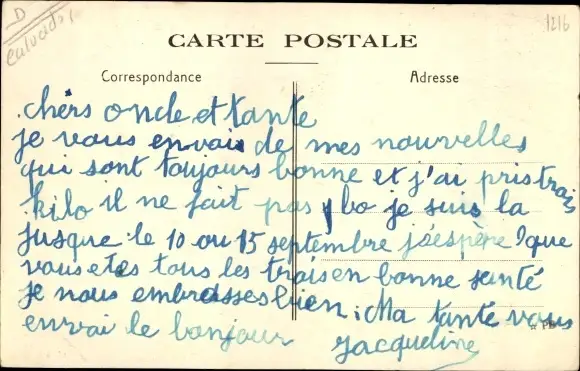 D
Calvados
1216
CARTE POSTALE
Correspondance
Adresse
chers oncle et tante
je vous envais de mes nouvelles
qui sont toujours bonne et j'ai pris trais
kilo il ne fait pas bo je suis la
jusque le 10 ou 15 septembre j'éspère que
vous etes tous les trais en bonne senté
je nous embrasses bien. Ma tante vous
envai le bonjour Jacqueline